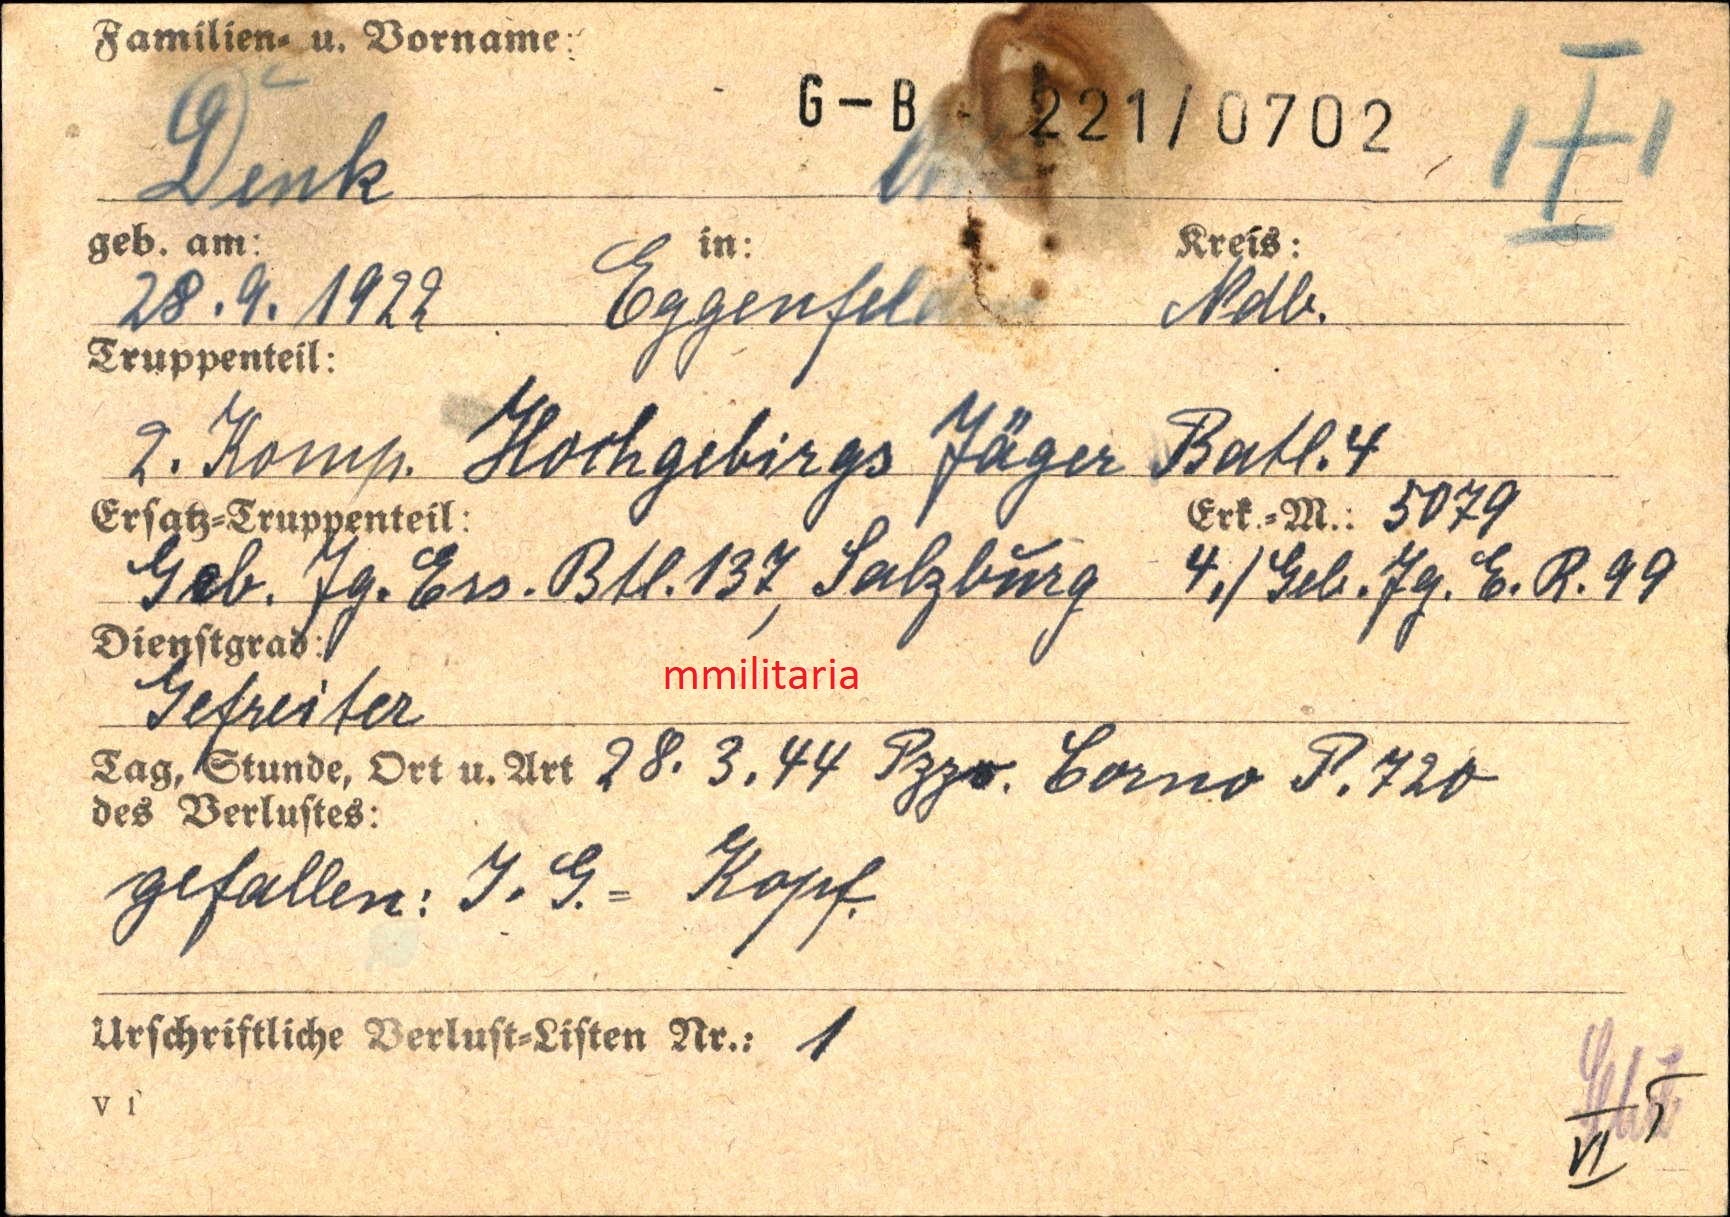 Familien- u. Vorname:
G-B 221/0702
Denk
geb. am: in: Kreis:
28.9.1922 Eggenfel Ndb.
Truppenteil:
2. Komp. Hochgebirgs Jäger Batl. 4
Ersatz-Truppenteil: Erk.-M.: 5079
Geb. Jg. Ers. Btl. 137, Salzburg 4./Geb. Jg. E. R. 99
Dienstgrad:
Gefreiter
mmilitaria
Tag, Stunde, Ort u. Art 28. 3. 44 Pzzo. Corno P. 720
des Verlustes:
gefallen: I. G. = Kopf.
Urschriftliche Verlust-Listen Nr.: 1
V 1
VI